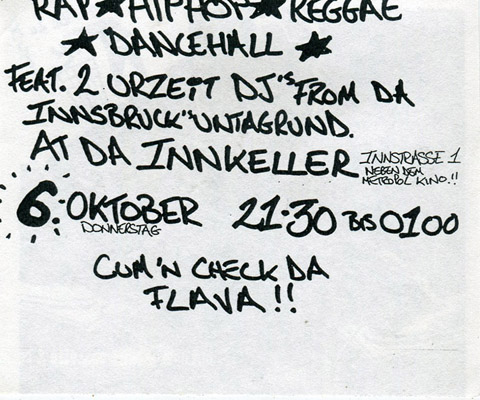 RAP★HIPHOP★REGGAE
★DANCEHALL ★
FEAT. 2 URZEIT DJ'S FROM DA
INNSBRUCK"UNTAGRUND.
AT DA INNKELLER INNSTRASSE 1
NEBEN DEM
METROPOL KINO!!
6. OKTOBER 21.30 BIS 0100
DONNERSTAG
CUM'N CHECK DA
FLAVA!!